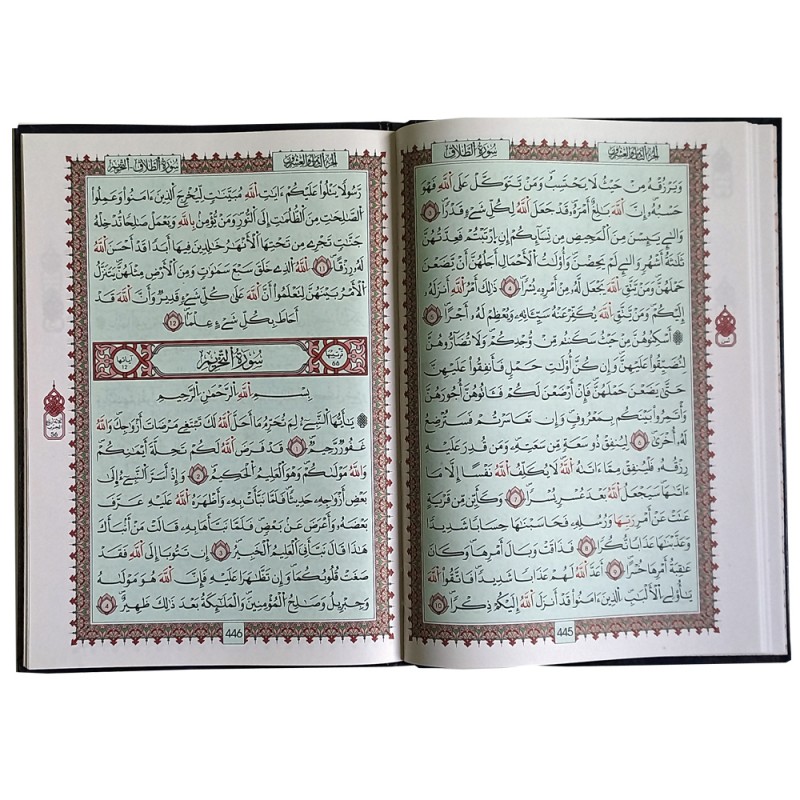 الجزء الثامن والعشرون
سورة الطلاق
وَيَرْزُقْهُ مِنْ حَيْثُ لَا يَحْتَسِبُ وَمَنْ يَّتَوَكَّلْ عَلَى اَللَّهِ فَهُوَ
حَسْبُهُۥٓ إِنَّ اَللَّهَ بَٰلِغٌ أَمْرَهُۥ قَدْ جَعَلَ اَللَّهُ لِكُلِّ شَےْءٍ قَدْراٗ 3
وَالَّٰٓـِٔے يَئِسْنَ مِنَ اَلْمَحِيضِ مِن نِّسَآئِكُمُۥٓ إِنِ اِرْتَبْتُمْ فَعِدَّتُهُنَّ
ثَلَٰثَةُ أَشْهُرٍ وَالَّٰٓـِٔے لَمْ يَحِضْنَ وَأُوْلَٰتُ اُلْأَحْمَالِ أَجَلُهُنَّ أَنْ يَّضَعْنَ
حَمْلَهُنَّ وَمَنْ يَّتَّقِ اِللَّهَ يَجْعَل لَّهُۥ مِنْ أَمْرِهِۦ يُسْراٗ 4 ذَٰلِكَ أَمْرُ اُللَّهِ أَنزَلَهُۥٓ
إِلَيْكُمْ وَمَنْ يَّتَّقِ اِللَّهَ يُكَفِّرْ عَنْهُ سَيِّـَٔاتِهِۦ وَيُعْظِمْ لَهُۥٓ أَجْراً 5
۞ أَسْكِنُوهُنَّ مِنْ حَيْثُ سَكَنتُم مِّنْ وُّجْدِكُمْ وَلَا تُضَآرُّوهُنَّ
لِتُضَيِّقُواْ عَلَيْهِنَّ وَإِن كُنَّ أُوْلَٰتِ حَمْلٖ فَأَنفِقُواْ عَلَيْهِنَّ
حَتَّىٰ يَضَعْنَ حَمْلَهُنَّ فَإِنْ أَرْضَعْنَ لَكُمْ فَـَٔاتُوهُنَّ أُجُورَهُنَّ
وَاتَمِرُواْ بَيْنَكُم بِمَعْرُوفٖ وَإِن تَعَاسَرْتُمْ فَسَتُرْضِعُ
لَهُۥٓ أُخْرَىٰ 6 لِيُنفِقْ ذُو سَعَةٖ مِّن سَعَتِهِۦ وَمَن قُدِرَ عَلَيْهِ
رِزْقُهُۥ فَلْيُنفِقْ مِمَّآ ءَاتَىٰهُ اُللَّهُ لَا يُكَلِّفُ اُللَّهُ نَفْساً إِلَّا مَآ
ءَاتَىٰهَا سَيَجْعَلُ اُللَّهُ بَعْدَ عُسْرٖ يُسْراٗ 7 وَكَأَيِّن مِّن قَرْيَةٍ
عَتَتْ عَنْ أَمْرِ رَبِّهَا وَرُسُلِهِۦ فَحَاسَبْنَٰهَا حِسَاباٗ شَدِيداٗ
وَعَذَّبْنَٰهَا عَذَاباٗ نُّكُراٗ 8 فَذَاقَتْ وَبَالَ أَمْرِهَا وَكَانَ
عَٰقِبَةُ أَمْرِهَا خُسْراً 9 أَعَدَّ اَللَّهُ لَهُمْ عَذَاباٗ شَدِيداٗ فَاتَّقُواْ اُللَّهَ
يَٰٓأُوْلِے اِلْأَلْبَٰبِ اِلذِينَ ءَامَنُواْ قَدْ أَنزَلَ اَللَّهُ إِلَيْكُمْ ذِكْراٗ 10
445
الجزء الثامن والعشرون
سورة الطلاق التحريم
رَّسُولاٗ يَتْلُواْ عَلَيْكُمُۥٓ ءَايَٰتِ اِللَّهِ مُبَيَّنَٰتٖ لِّيُخْرِجَ اَلذِينَ ءَامَنُواْ وَعَمِلُواْ
اُلصَّٰلِحَٰتِ مِنَ اَلظُّلُمَٰتِ إِلَى اَلنُّورِ وَمَنْ يُّؤْمِنۢ بِاللَّهِ وَيَعْمَلْ صَٰلِحاٗ نُّدْخِلْهُ
جَنَّٰتٖ تَجْرِے مِن تَحْتِهَا اَلْأَنْهَٰرُ خَٰلِدِينَ فِيهَآ أَبَداٗ قَدْ أَحْسَنَ اَللَّهُ
لَهُۥ رِزْقاً 11 اِللَّهُ اُلذِے خَلَقَ سَبْعَ سَمَٰوَٰتٖ وَمِنَ اَلْأَرْضِ مِثْلَهُنَّ يَتَنَزَّلُ
اُلْأَمْرُ بَيْنَهُنَّ لِتَعْلَمُوٓاْ أَنَّ اَللَّهَ عَلَىٰ كُلِّ شَےْءٖ قَدِيرٞ وَأَنَّ اَللَّهَ قَدْ
أَحَاطَ بِكُلِّ شَےْءٍ عِلْماٗ 12
ترتيبها 66
سورة التحريم
آياتها 12
بِسْمِ اِللَّهِ اِلرَّحْمَٰنِ اِلرَّحِيمِ
۞ يَٰٓأَيُّهَا اَلنَّبِےٓءُ لِمَ تُحَرِّمُ مَآ أَحَلَّ اَللَّهُ لَكَ تَبْتَغِے مَرْضَاتَ أَزْوَٰجِكَ وَاللَّهُ
غَفُورٞ رَّحِيمٞ 1 قَدْ فَرَضَ اَللَّهُ لَكُمْ تَحِلَّةَ أَيْمَٰنِكُمْ
وَاللَّهُ مَوْلَىٰكُمْ وَهُوَ اَلْعَلِيمُ اُلْحَكِيمُ 2 وَإِذَ اَسَرَّ اَلنَّبِےٓءُ إِلَىٰ
بَعْضِ أَزْوَٰجِهِۦ حَدِيثاٗ فَلَمَّا نَبَّأَتْ بِهِۦ وَأَظْهَرَهُ اُللَّهُ عَلَيْهِ عَرَّفَ
بَعْضَهُۥ وَأَعْرَضَ عَنۢ بَعْضٖ فَلَمَّا نَبَّأَهَا بِهِۦ قَالَتْ مَنْ أَنۢبَأَكَ
هَٰذَا قَالَ نَبَّأَنِيَ اَلْعَلِيمُ اُلْخَبِيرُ 3 إِن تَتُوبَآ إِلَى اَللَّهِ فَقَدْ
صَغَتْ قُلُوبُكُمَا وَإِن تَظَّٰهَرَا عَلَيْهِ فَإِنَّ اَللَّهَ هُوَ مَوْلَىٰهُ
وَجِبْرِيلُ وَصَٰلِحُ اُلْمُؤْمِنِينَ وَالْمَلَٰٓئِكَةُ بَعْدَ ذَٰلِكَ ظَهِيرٌ 4
446